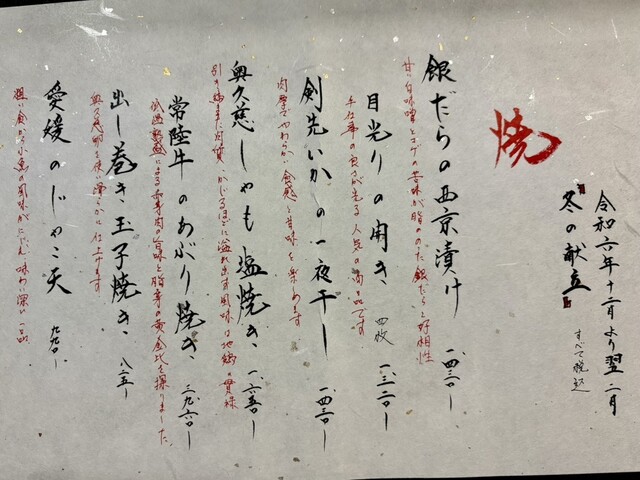 令和六年十二月より翌二月
冬の献立
すべて税込
焼
銀だらの西京漬け 一、四三〇ー
甘い白味噌とコゲの苦味が脂ののった銀だらと好相性
目光りの開き 四枚 一、三二〇ー
手仕事の良さが光る人気の肉品です
剣先いかの一夜干し 一、四三〇ー
肉厚でやわらかい食感と甘味を楽めます
奥久慈しゃも塩焼き 一、六五〇ー
引き締まった肉質、かじるほどに溢れ出す風味は地鶏の貫禄
常陸牛のあぶり焼き 三、九六〇ー
低温熟成による赤身肉の旨味と脂身の黄金比を探りました
出し巻き玉子焼き 八二五ー
奥久慈卵を使い滑らかに仕上げます
愛媛のじゃこ天 九九〇ー
粗い食感が小魚の風味がにじむ味わい深い一品